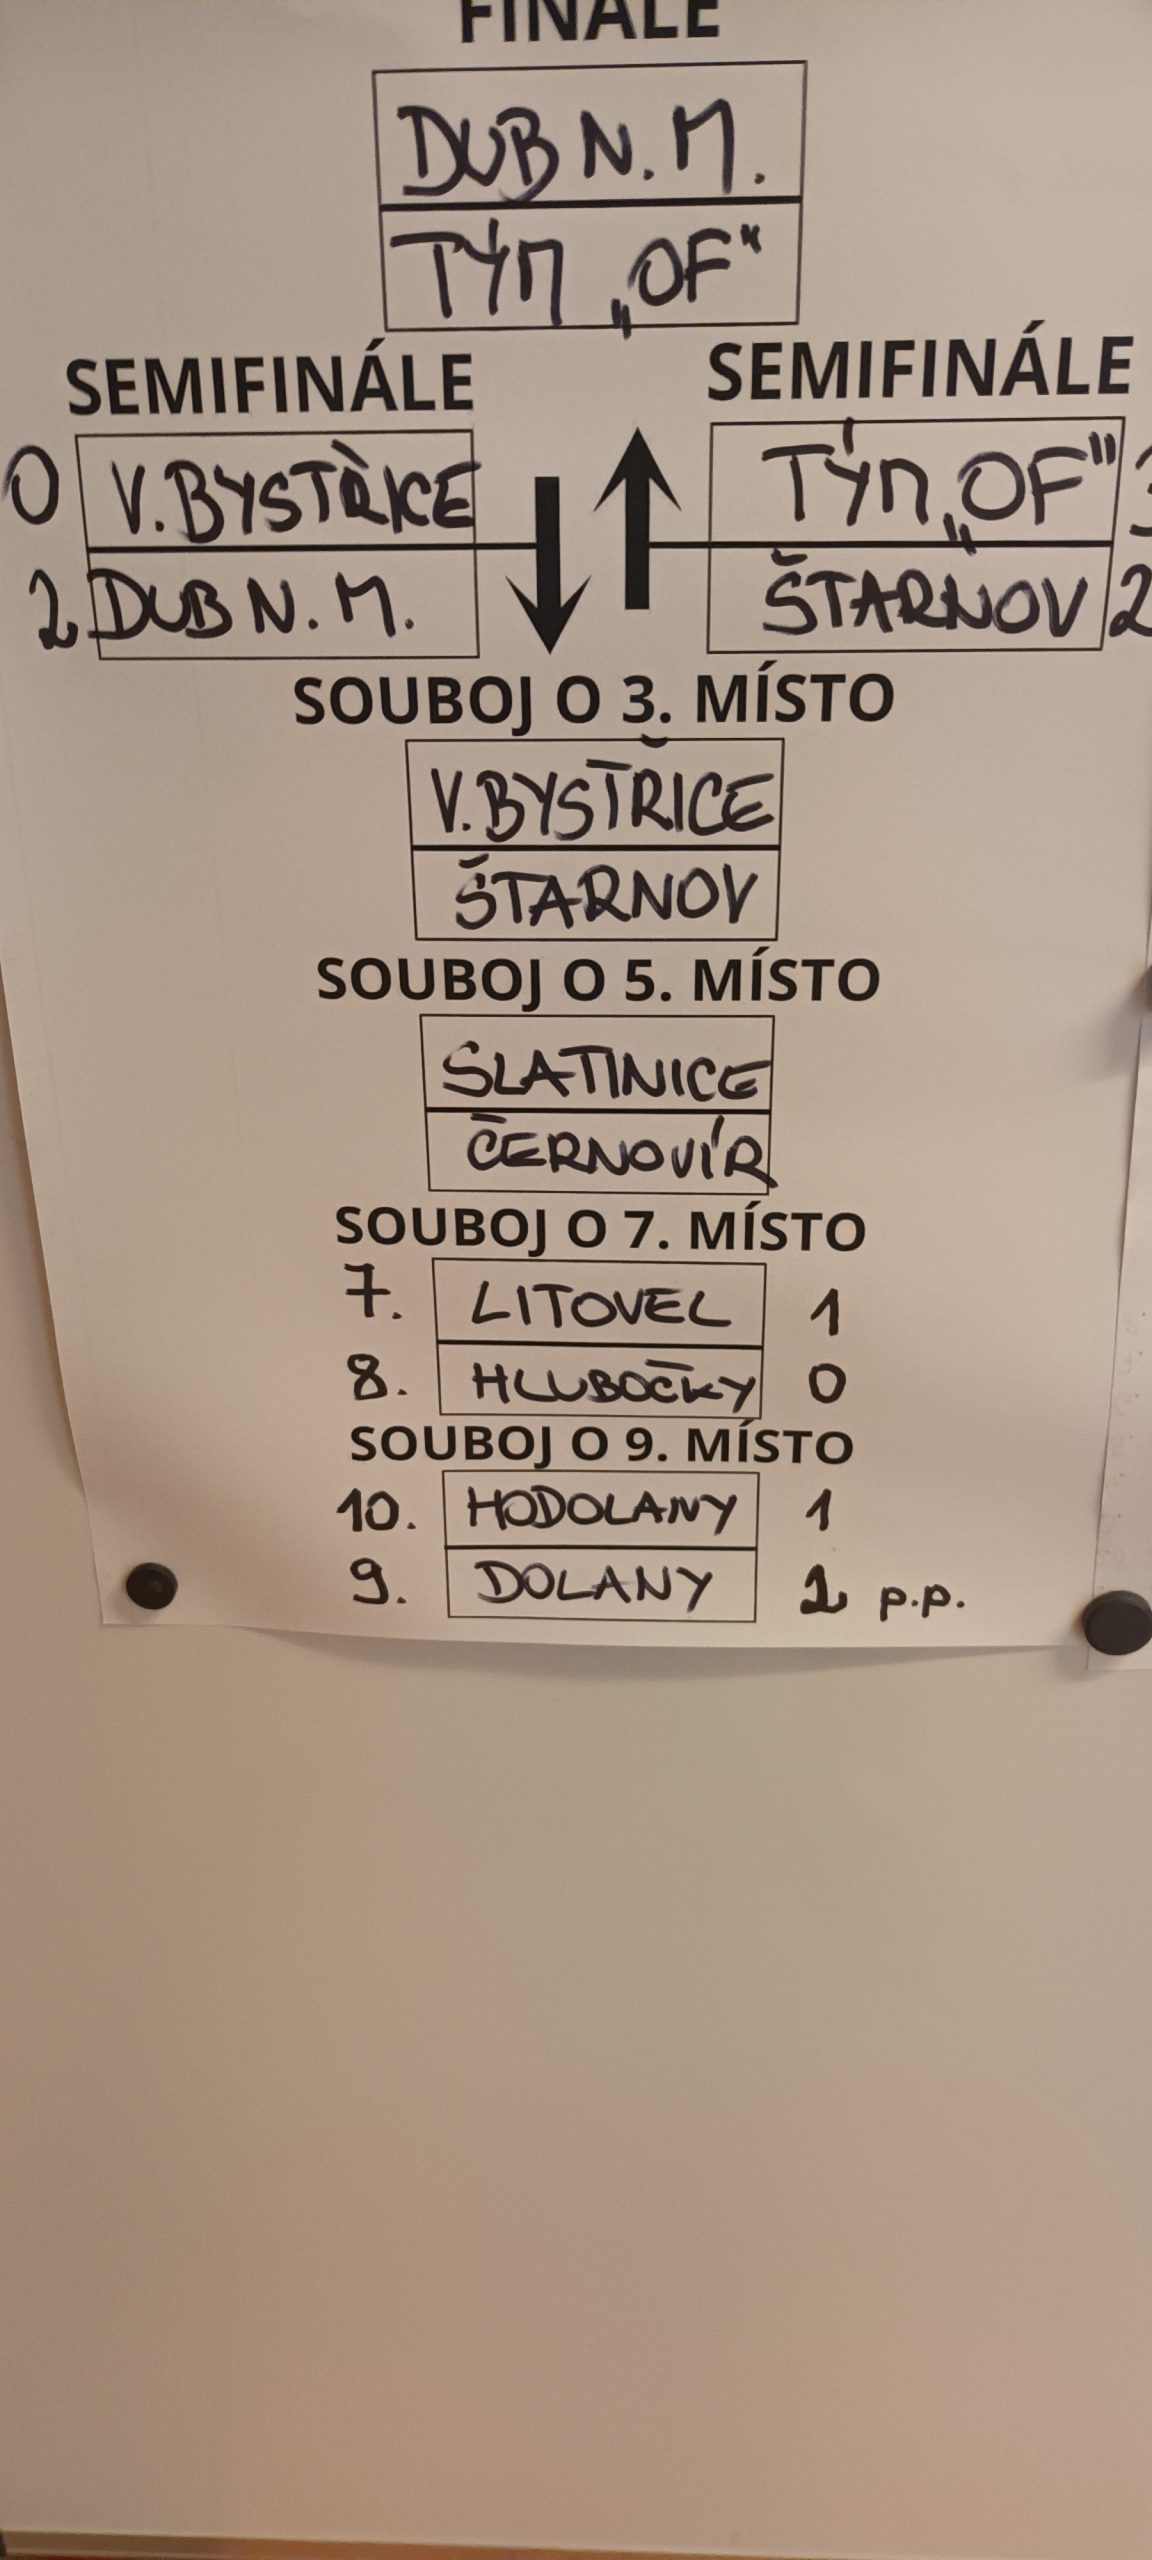 FINÁLE
DUB N. M.
TÝM „OF"
SEMIFINÁLE SEMIFINÁLE
0 V. BYSTŘICE TÝM „OF" 3
2 DUB N. M. ŠTARNOV 2
SOUBOJ O 3. MÍSTO
V. BYSTŘICE
ŠTARNOV
SOUBOJ O 5. MÍSTO
SLATINICE
ČERNOVÍR
SOUBOJ O 7. MÍSTO
7. LITOVEL 1
8. HLUBOČKY 0
SOUBOJ O 9. MÍSTO
10. HODOLANY 1
9. DOLANY 2 p.p.